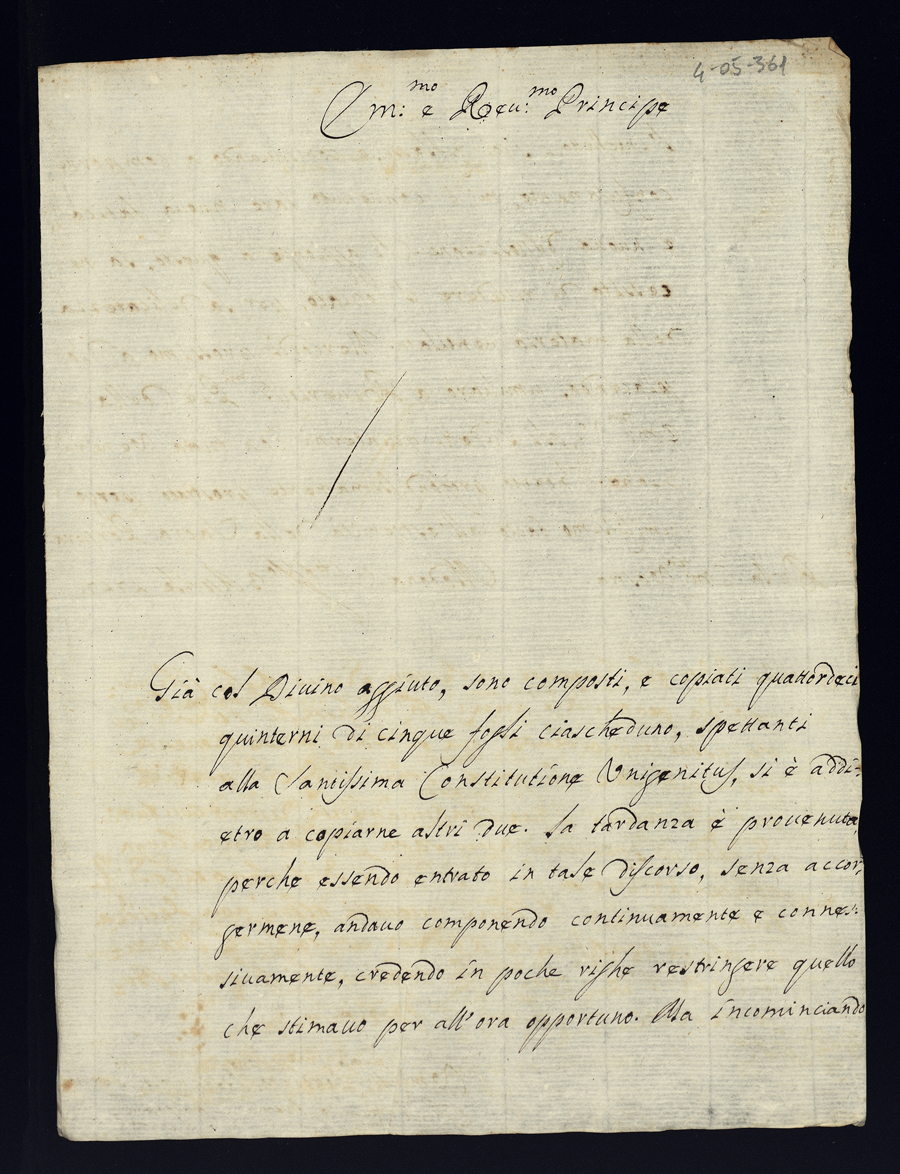 4-05-361
Em:mo e Reu:mo Principe
Già col Diuino aggiuto, sono composti, e copiati quattordeci
quinterni di cinque fogli ciascheduno, spettanti
alla Santissima Constitutione Unigenitus, si è addi=
etro a copiarne altri due. La tardanza è prouenuta,
perche essendo entrato in tale discorso, senza accor,
germene, andauo componendo continuamente e connes:
siuamente, credendo in poche righe restringere quello
che stimauo per all'ora opportuno. Ma incominciando